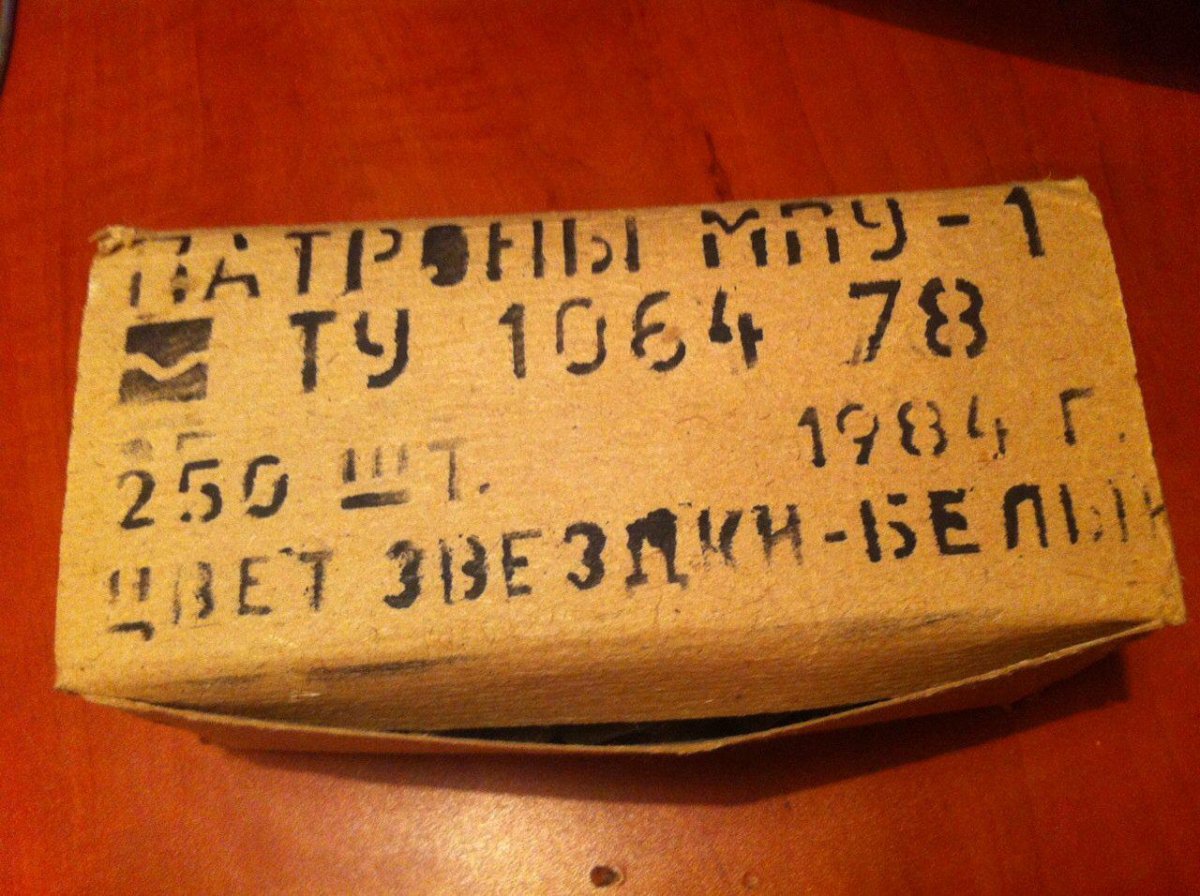 ПАТРОНЫ МПУ-1
ТУ 1064 78
250 ШТ. 1984 Г.
ЦВЕТ ЗВЕЗДКИ-БЕЛЫЙ